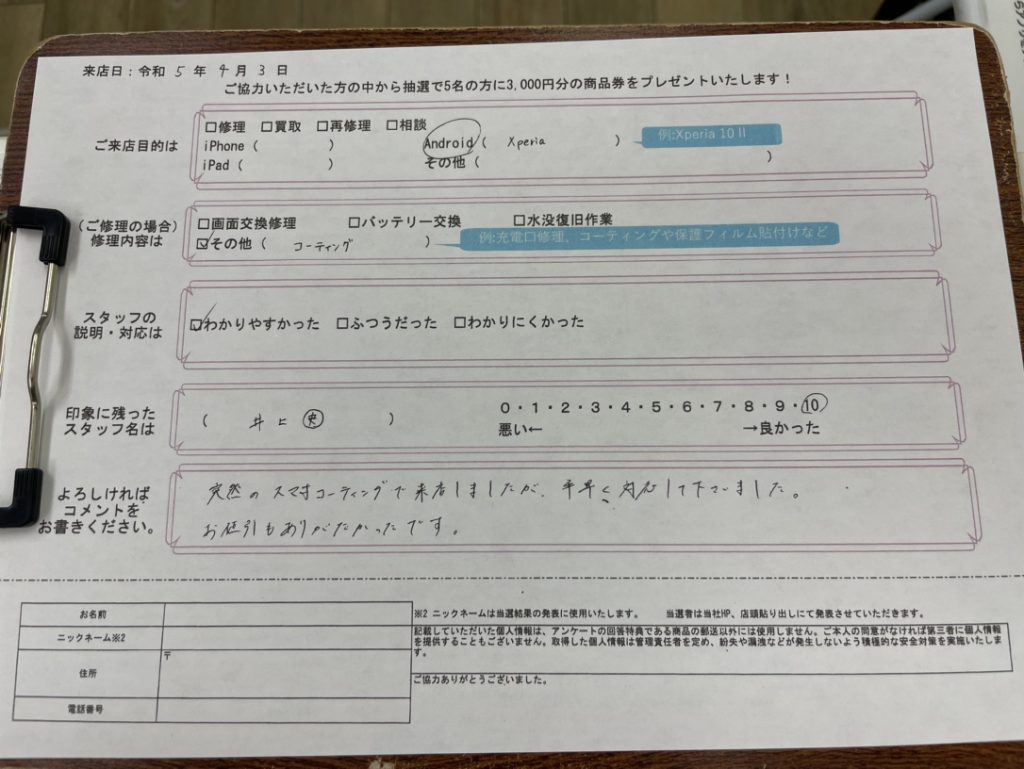 来店日：令和 5 年 4 月 3 日
ご協力いただいた方の中から抽選で5名の方に3,000円分の商品券をプレゼントいたします！
ご来店目的は
□修理 □買取 □再修理 □相談
iPhone（ ） Android（ Xperia ） 例:Xperia 10 II
iPad（ ） その他（ ）
（ご修理の場合）
修理内容は
□画面交換修理 □バッテリー交換 □水没復旧作業
☑その他（ コーティング ） 例:充電口修理、コーティングや保護フィルム貼付けなど
スタッフの
説明・対応は
☑わかりやすかった □ふつうだった □わかりにくかった
印象に残った
スタッフ名は
（ 井上 ）
0・1・2・3・4・5・6・7・8・9・10
悪い← →良かった
よろしければ
コメントを
お書きください。
突然のスマホコーティングで来店しましたが、手早く対応して下さいました。
お値引もありがたかったです。
お名前
ニックネーム※2
住所
〒
電話番号
※2 ニックネームは当選結果の発表に使用いたします。 当選者は当社HP、店頭貼り出しにて発表させていただきます。
記載していただいた個人情報は、アンケートの回答特典である商品の郵送以外には使用しません。ご本人の同意がなければ第三者に個人情報
を提供することもございません。取得した個人情報は管理責任者を定め、紛失や漏洩などが発生しないよう積極的な安全対策を実施いたしま
す。
ご協力ありがとうございました。